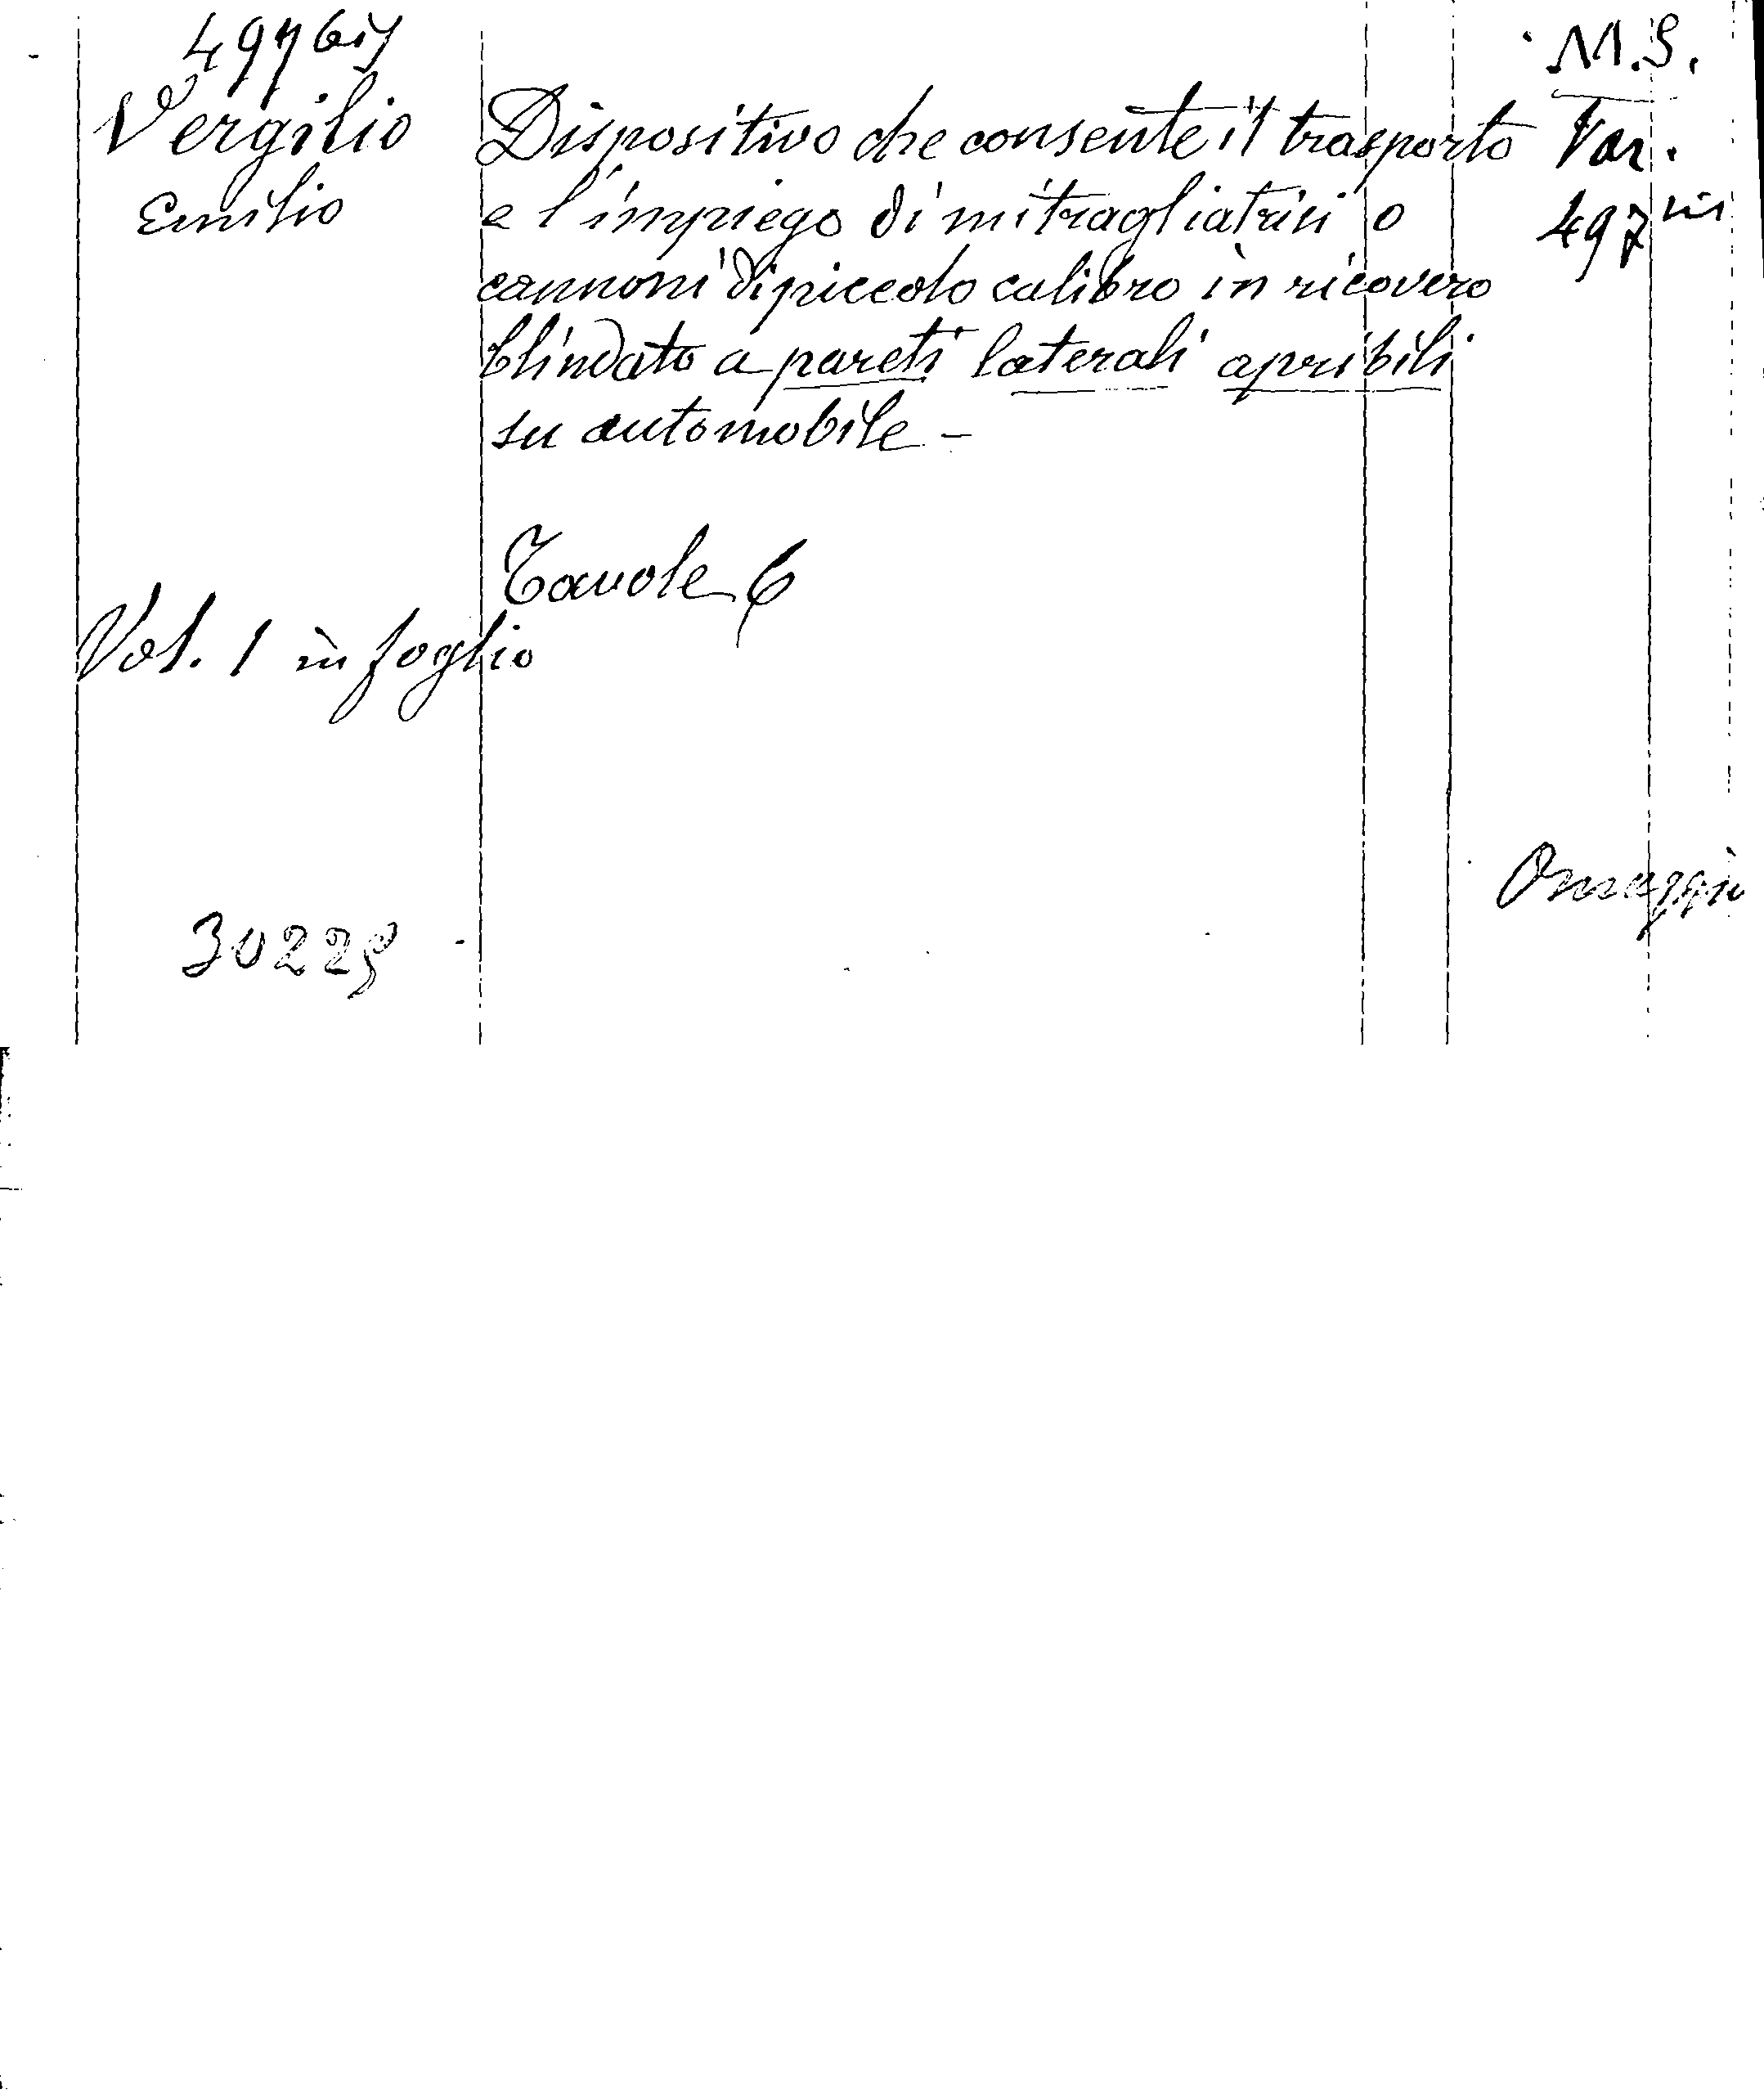 497 bis
M.S.
Vergilio
Emilio
Dispositivo che consente il trasporto
e l'impiego di mitragliatrici o
cannoni di piccolo calibro in ricovero
blindato a pareti laterali apribili
su automobile -
Var.
497 bis
Tavole 6
Vol. 1 in foglio
Omaggio
30229